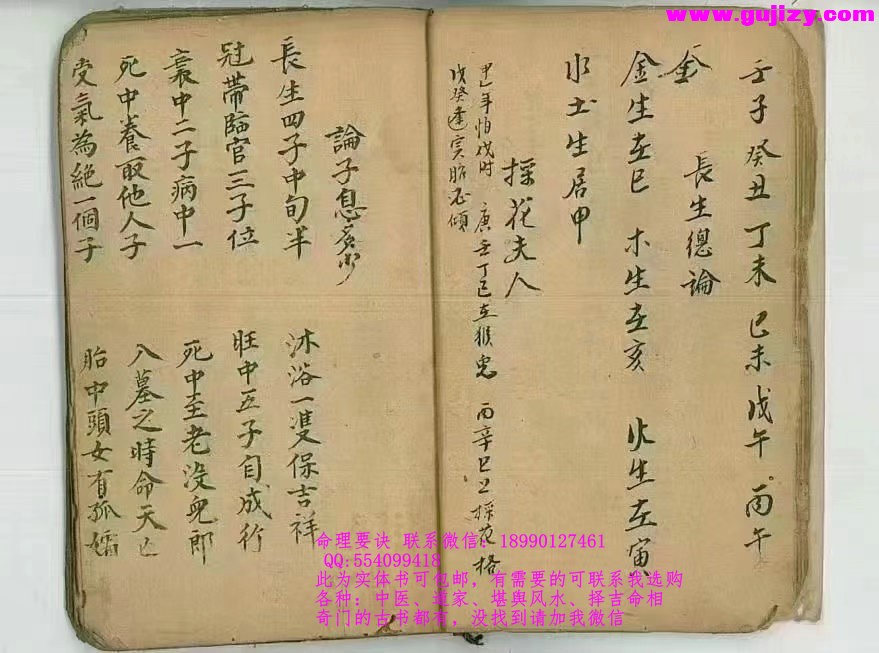 www.gujizy.com
壬子癸丑丁未己未戊午丙午
長生總論
金
金生在巳 木生在亥 火生在寅
水土生居甲
採花夫人
甲乙年怕戌时 庚壬丁巳在猴兎 丙辛巳上採花格
戊癸逢寅
論子息多少
長生四子中旬半 沐浴一雙保吉祥
冠帶臨官三子位 旺中五子自成行
衰中二子病中一 死中至老没兒郎
死中養取他人子 入墓之時命夭亡
受氣為絕一個子 胎中頭女有孤孀
命理要诀 联系微信：18990127461
QQ:554099418
此为实体书可包邮，有需要的可联系我选购
各种：中医、道家、堪舆风水、择吉命相
奇门的古书都有，没找到请加我微信